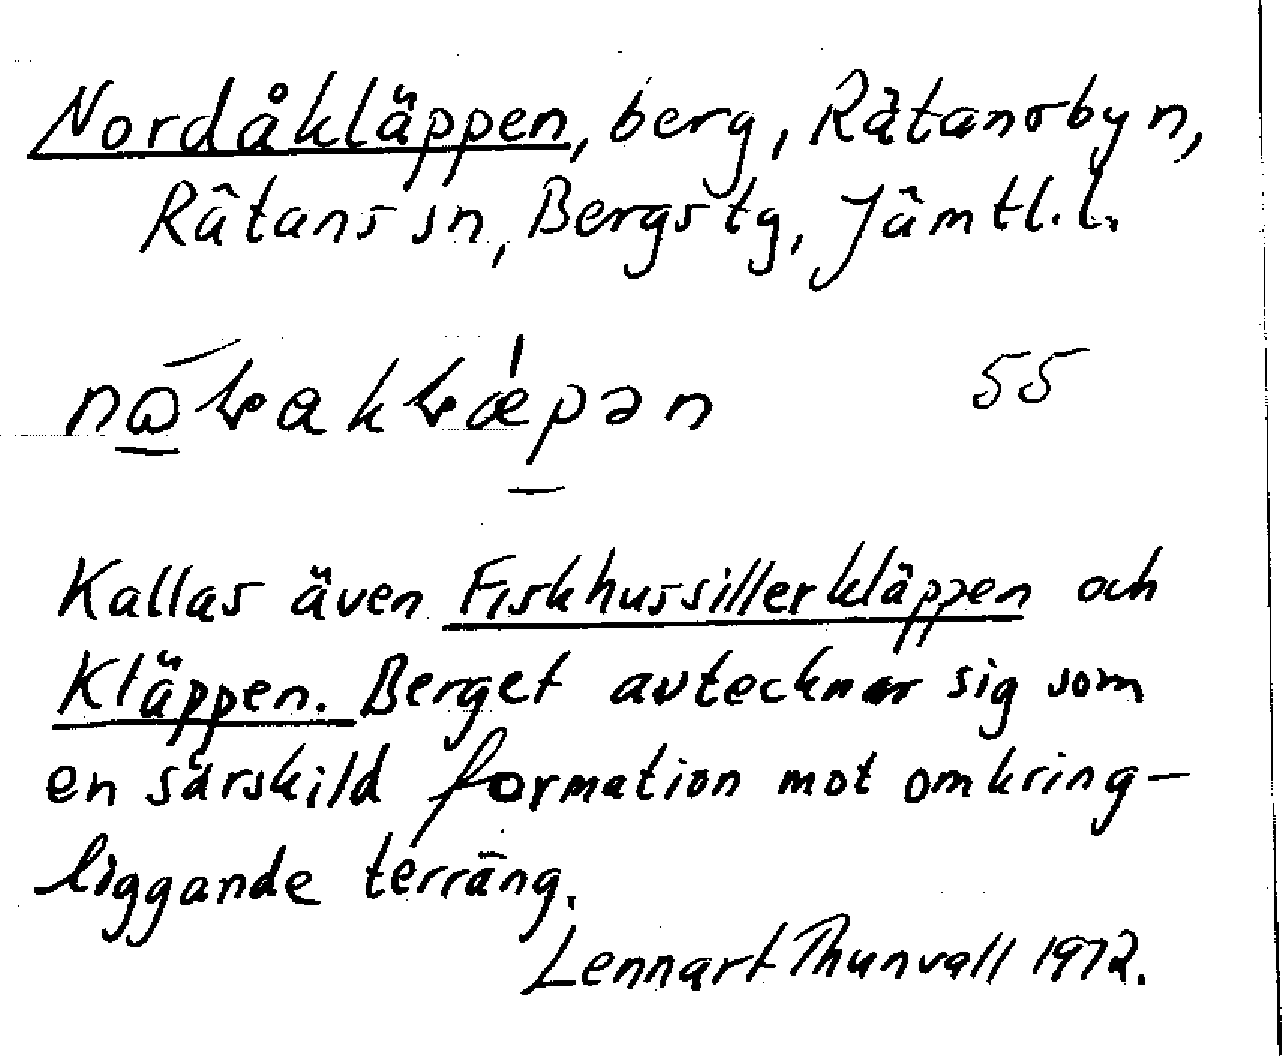 Nordåkläppen, berg, Rätansbyn,
Rätans sn, Bergs tg, Jämtl. l.
55
Kallas även Fiskhussillerkläppen och
Kläppen. Berget avtecknar sig som
en särskild formation mot omkring-
liggande terräng.
Lennart Thunvall 1972.